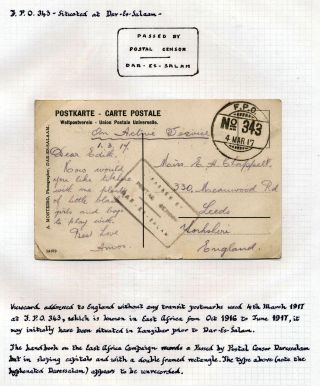 F.P.O. 343 - Situated at Dar-Es-Salaam -
PASSED BY
POSTAL CENSOR
DAR-ES-SALAM
POSTKARTE - CARTE POSTALE
Weltpostverein - Union Postale Universelle.
On Active Service
1. 3. 17.
Dear Edith.
How would
you like to be here
with me plenty
of little black
girls and boys
to play with.
Best Love
Amos.
A. MONTEIRO, Photographer, DAR-ES-SALAAM.
F.P.O
No 343
4 MAR 17
Miss E. A. Chappell
330, Meanwood Rd
Leeds
Yorkshire
England.
PASSED BY
POSTAL CENSOR
DAR-ES-SALAM
Viewcard addressed to England without any transit postmarks used 4th March 1917
at F.P.O. 343, which is known in East Africa from Oct 1916 to June 1917, it
may initially have been situated in Zanzibar prior to Dar-Es-Salam.
The handbook on the East Africa Campaign records a Passed by Postal Censor Daressalam
but in sloping capitals and with a double framed rectangle. The type above (note the
hyphenated Daressalam) appears to be unrecorded.